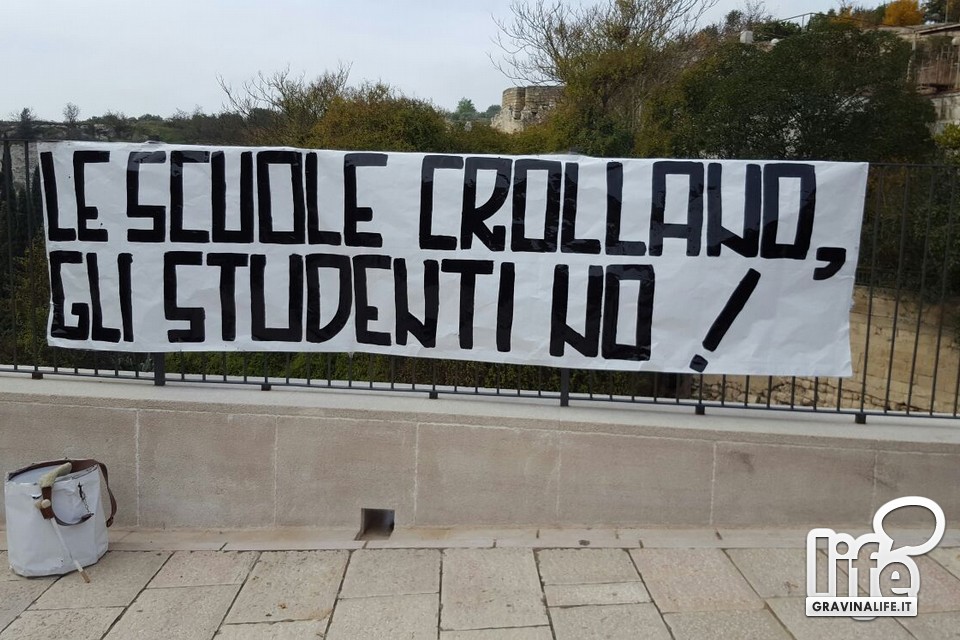 LE SCUOLE CROLLANO,
GLI STUDENTI NO!
life
GRAVINALIFE.IT